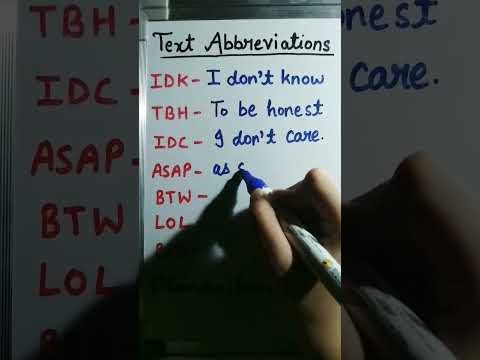 Text Abbreviations
IDK - I don't know
TBH - To be honest
IDC - I don't care.
ASAP - as s
BTW -
LOL
TBH -
IDC -
ASAP -
BTW
LOL
care.